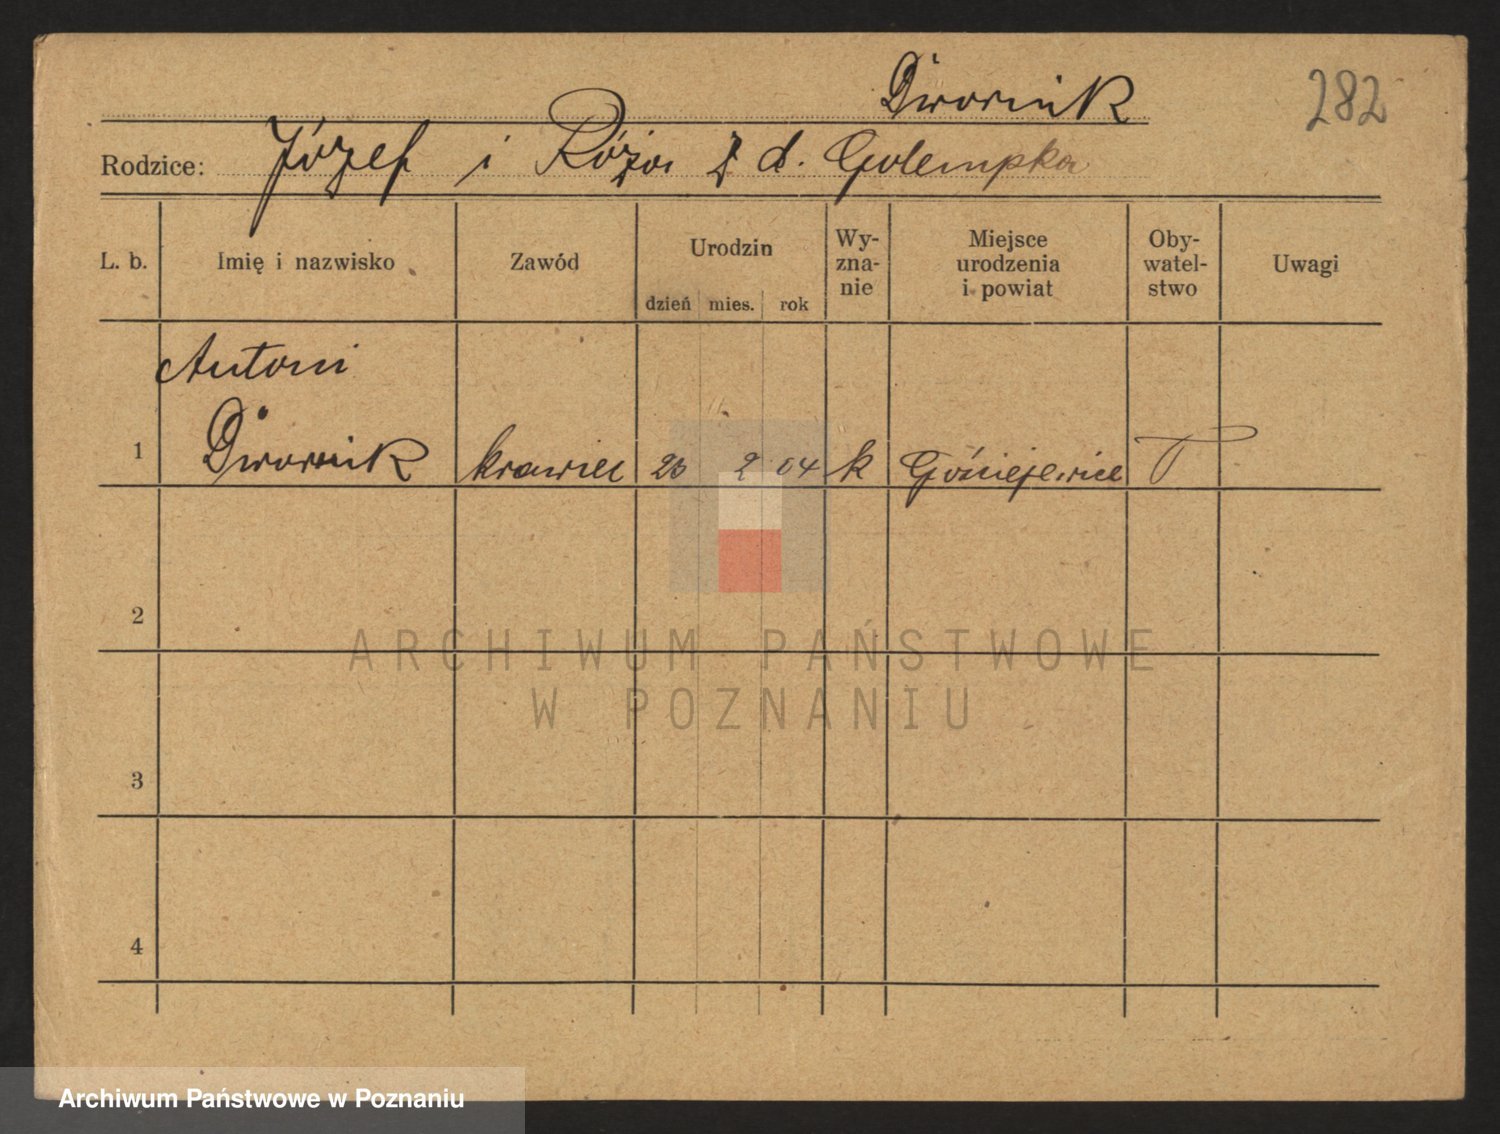 Dwornik
282
Rodzice: Józef i Róża z d. Golempka
L. b.
Imię i nazwisko
Zawód
Urodzin
dzień mies. rok
Wy-
zna-
nie
Miejsce
urodzenia
i powiat
Oby-
watel-
stwo
Uwagi
Antoni
1 Dwornik krawiec 23 2 04 k Gościejewice P
2
3
4
ARCHIWUM PAŃSTWOWE
W POZNANIU
Archiwum Państwowe w Poznaniu